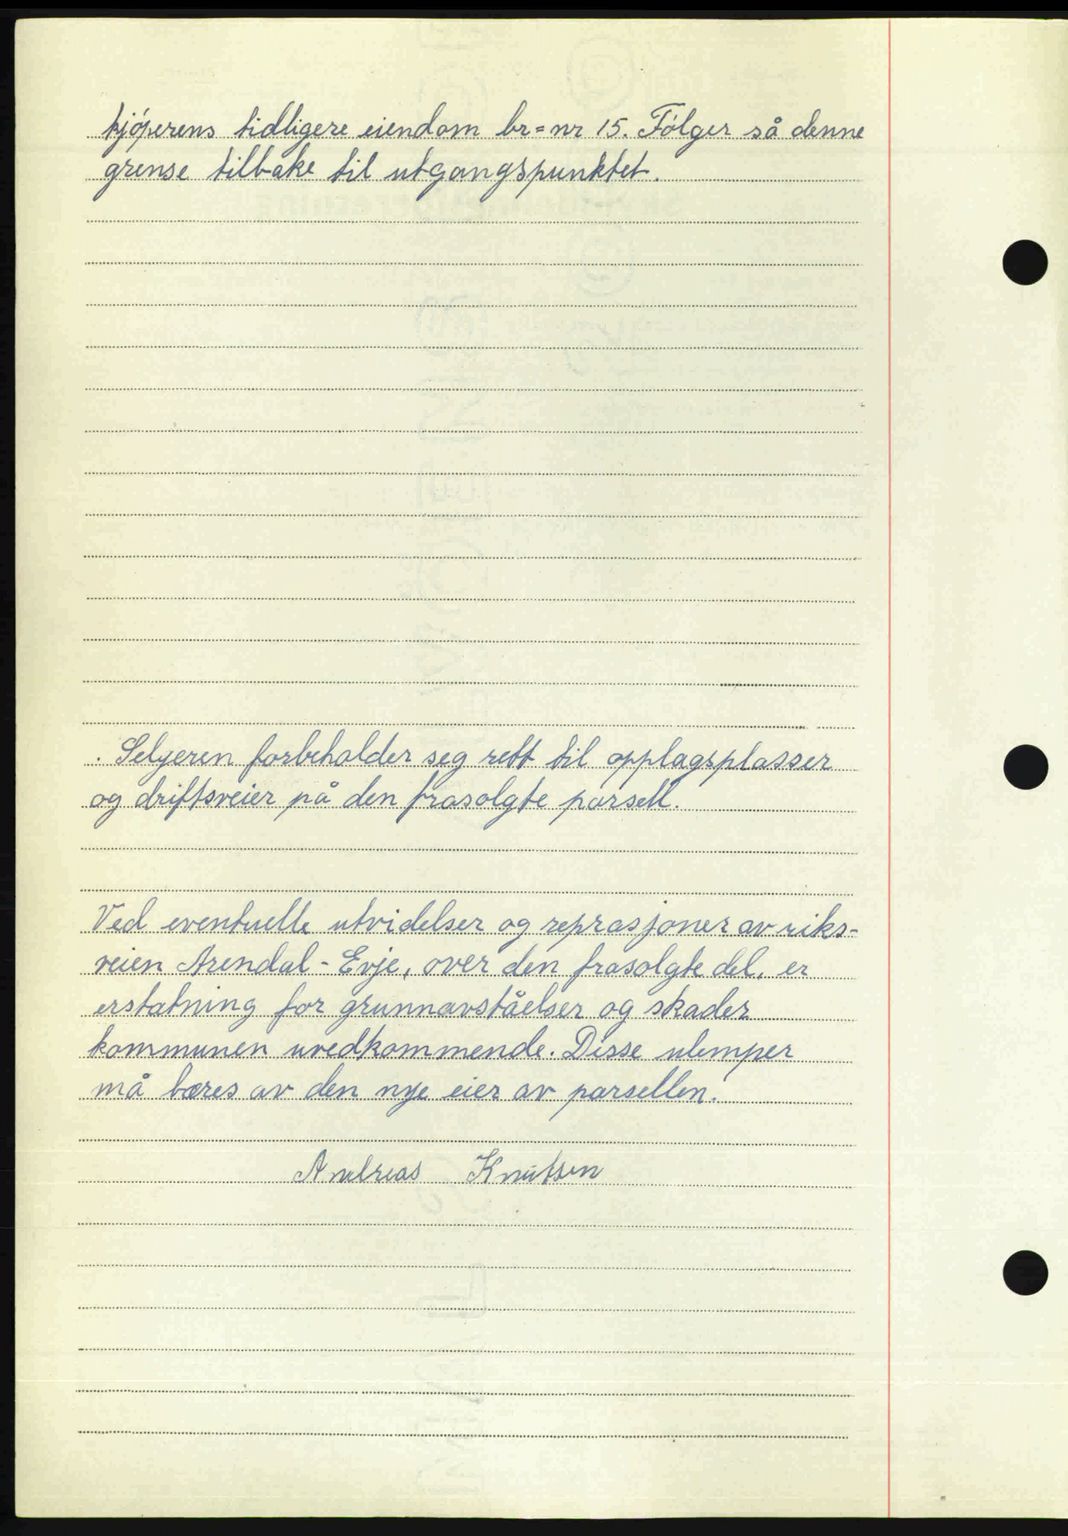 kjöperens tidligere eiendom br=nr 15. Fölger så denne
grense tilbake til utgangspunktet.
. Selgeren forbeholder seg rett til opplagsplasser
og driftsveier på den frasolgte parsell.
Ved eventuelle utvidelser og reprasjoner av riks-
veien Arendal - Evje, over den frasolgte del, er
erstatning for grunnavståelser og skader
kommunen uvedkommende. Disse ulemper
må bæres av den nye eier av parsellen.
Andreas Knutsen